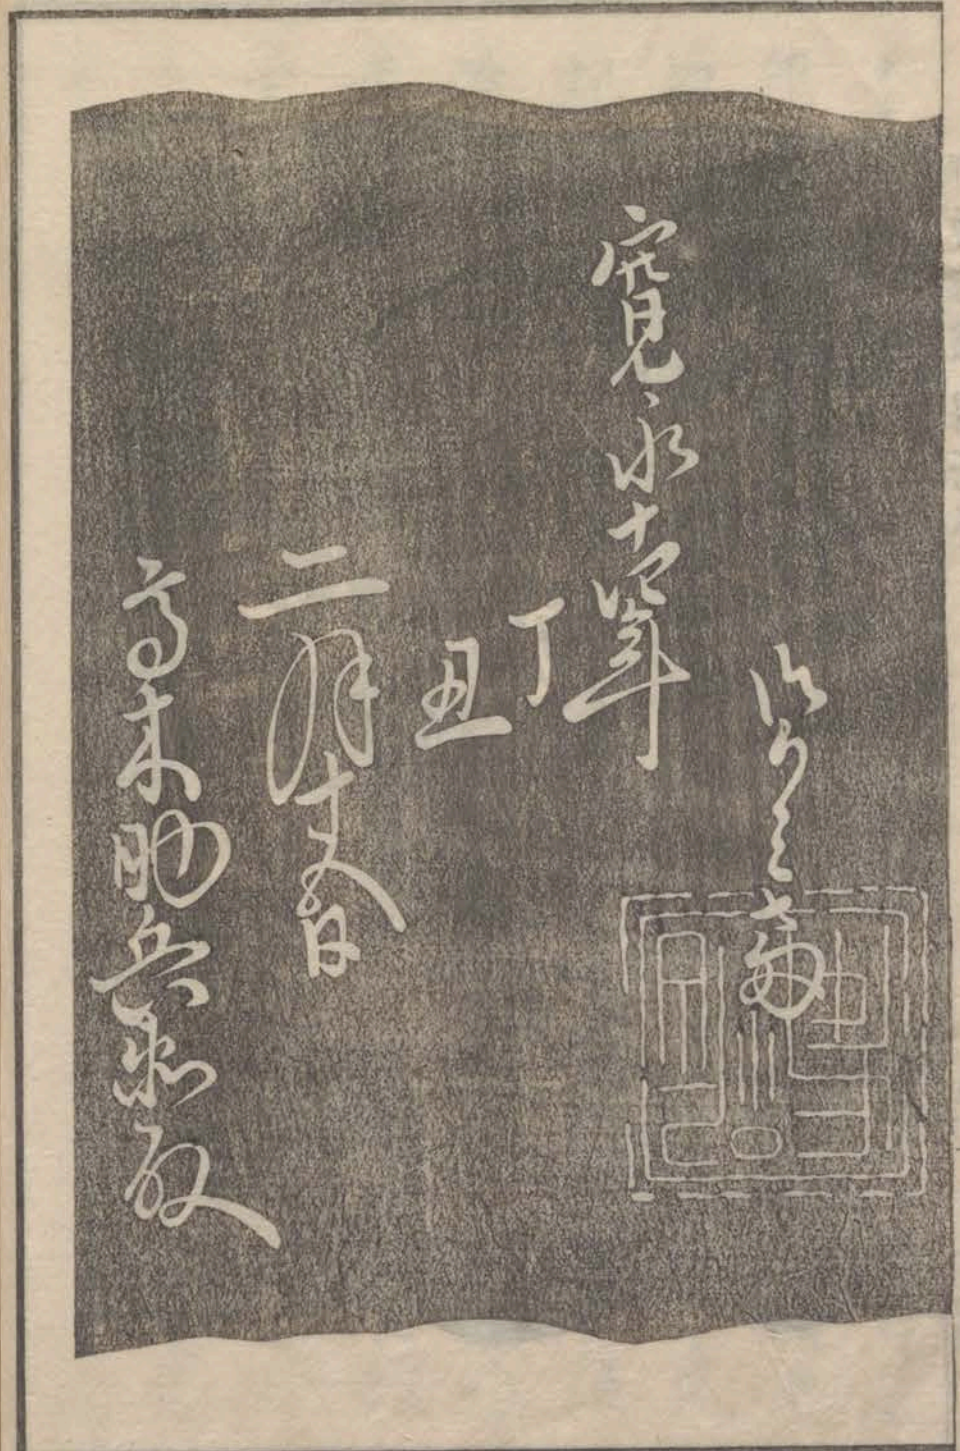 寛永十四年
丁
丑
二月十五日
高木助兵衛殿